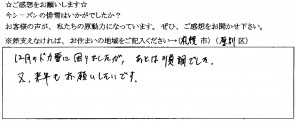 ☆ご感想をお願いします☆
今シーズンの排雪はいかがでしたか？
お客様の声が、私たちの原動力になっています。ぜひ、ご感想をお聞かせ下さい。
※差支えなければ、お住まいの地域をご記入ください→(札幌 市)(厚別 区)
12月のドカ雪に困りましたが、あとは順調でした。
又、来年もお願いしたいです。